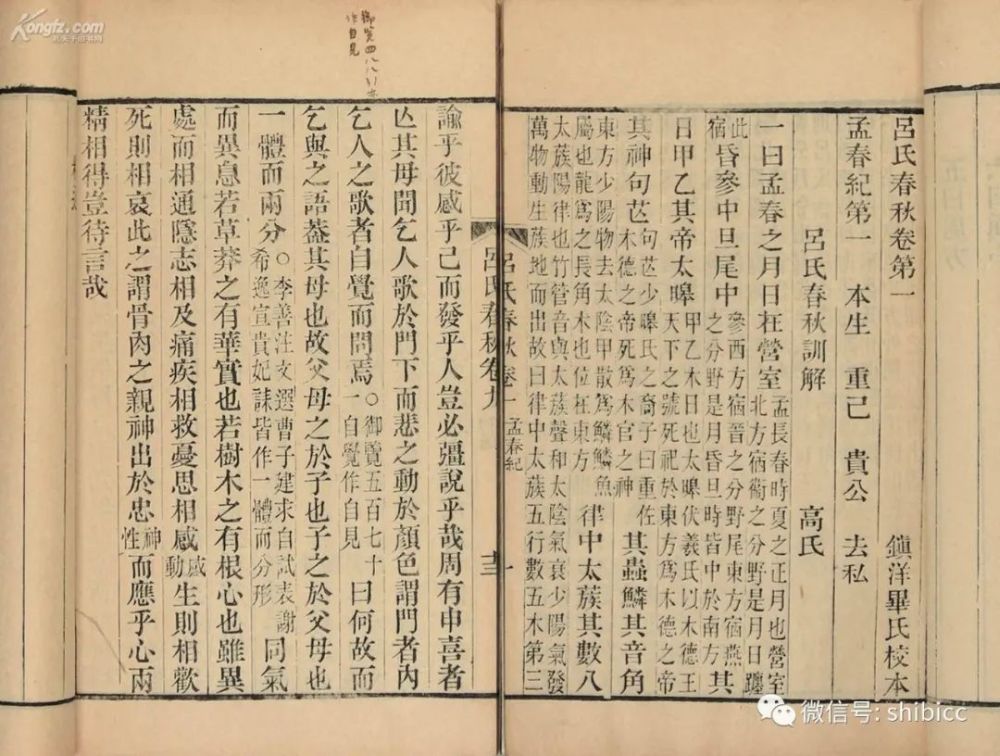 呂氏春秋卷第一　鎮洋畢氏校本
孟春紀第一　本生　重己　貴公　去私
呂氏春秋訓解　高氏
一曰孟春之月日在營室孟長春時夏之正月也營室北方宿衞之分野是月日躔
此宿昏參中旦尾中參西方宿晉之分野尾東方宿燕之分野是月昏旦時皆中於南方其
日甲乙其帝太皞甲乙木日也太皞伏羲氏以木德王天下之號死祀於東方爲木德之帝
其神句芒句芒少皞氏之裔子曰重佐木德之帝死爲木官之神其蟲鱗其音角
東方少陽物去太陰甲散爲鱗鱗魚屬也龍爲之長角木也位在東方律中太蔟其數八
太蔟陽律也竹管音與太蔟聲和太陰氣衰少陽氣發萬物動生蔟地而出故曰律中太蔟五行數五木第三
呂氏春秋卷一　孟春紀　一
呂氏春秋卷九　十三
諭乎彼感乎己而發乎人豈必彊說乎哉周有申喜者
亾其母聞乞人歌於門下而悲之動於顏色謂門者內
乞人之歌者自覺而問焉○御覽五百七十一自覺作自見曰何故而
乞與之語葢其母也故父母之於子也子之於父母也
一體而兩分○李善注文選曹子建求自試表謝希逸宣貴妃誄皆作一體而分形同氣
而異息若草莽之有華實也若樹木之有根心也雖異
處而相通隱志相及痛疾相救憂思相感感動生則相歡
死則相哀此之謂骨肉之親神出於忠神性而應乎心兩
精相得豈待言哉
作自見
Kongfz.com
微信号: shibicc